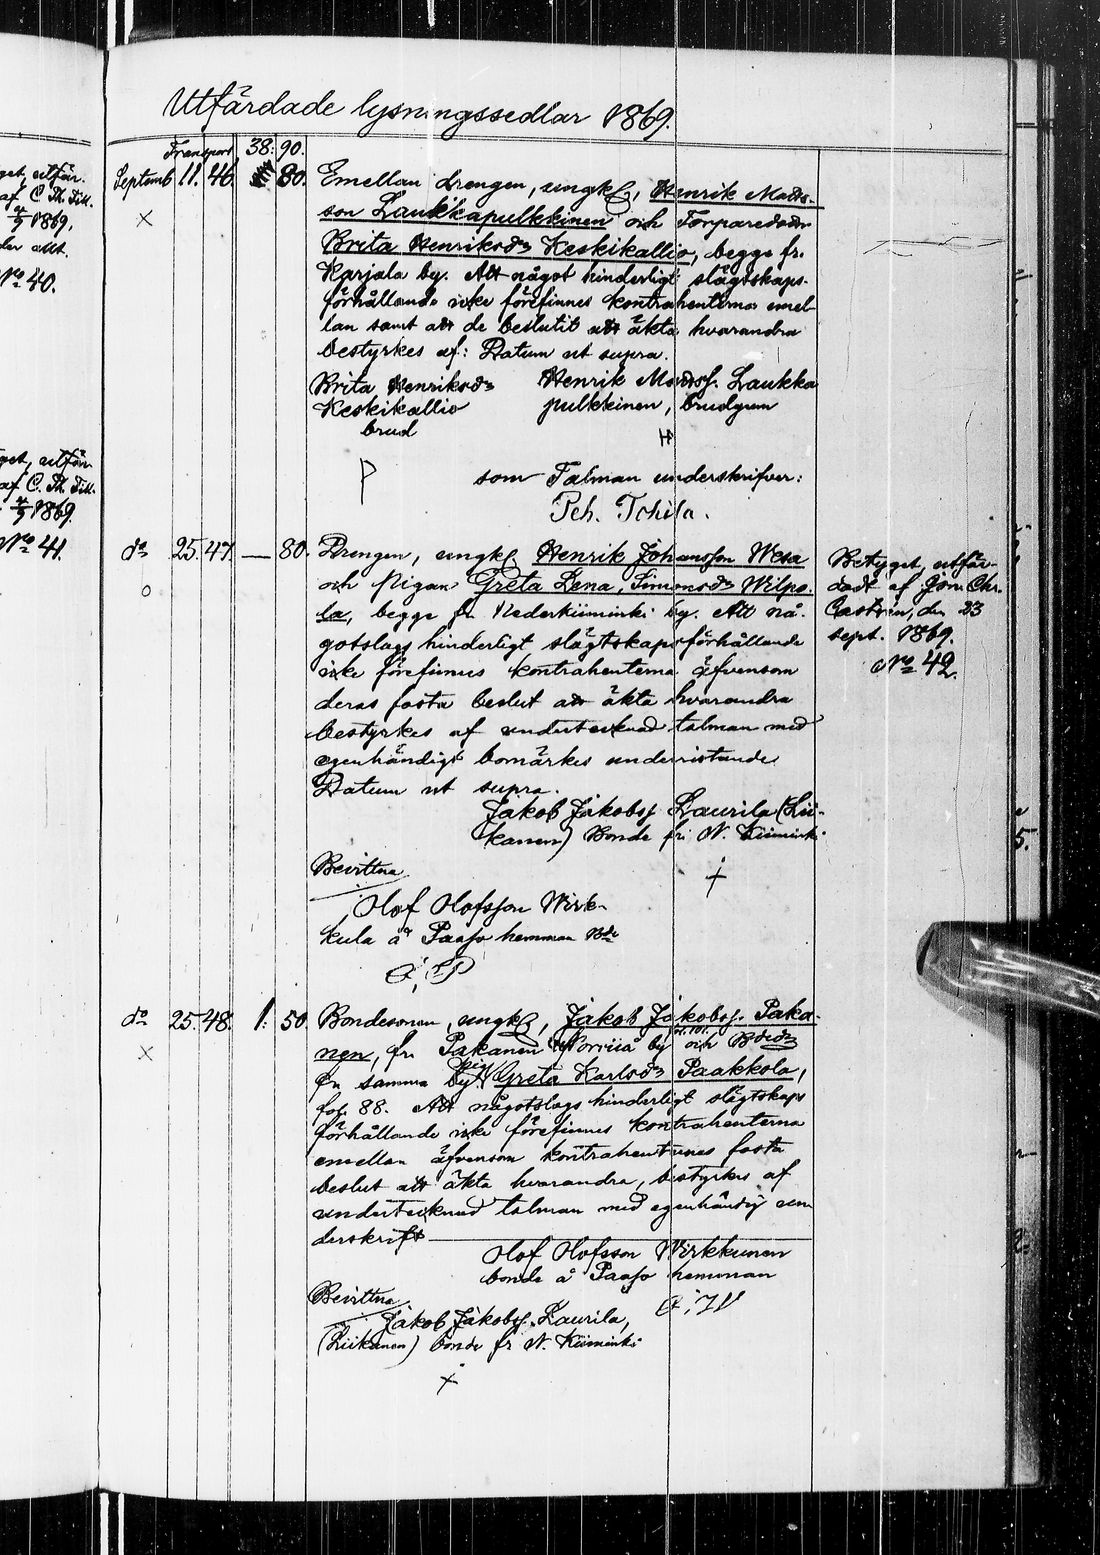 Utfärdade lysningssedlar 1869.
Transport 38: 90.
Septemb 11. 46. 80. Emellan drengen, ungkl, Henrik Matts-
son Laukkapulkkinen och Torparedodr
Brita Henriksdr Keskikallio, begge fr.
Karjala by. Att något hinderligt slägtskaps-
förhållande icke förefinnes kontrahenterna emel-
lan samt att de beslutit att äkta hvarandra
bestyrkes af: Datum ut supra.
Brita Henriksdr
Keskikallio
brud
Henrik Mattss. Laukka
pulkkinen, brudgum
som Talman underskrifver:
Peh. Tohila.
do 25. 47. — 80. Drengen, ungkl. Henrik Johansson Wesa
och Pigan Greta Lena, Simonsdr Wilpo-
la, begge fr. Nederkiiminki by. Att nå-
gotslags hinderligt slägtskapsförhållande
icke förefinnes kontrahenterna äfvensom
deras fasta beslut att äkta hvarandra
bestyrkes af undertecknad talman med
egenhändigt bomärkes underristande
Datum ut supra.
Jakob Jakobss Laurila (Lii-
kanen) Bonde fr. N. Kiiminki
Bevittna
Olof Olofsson Wirk-
kula å Paaso hemman Bde
Betyget, utfär-
dadt af Chr.
Castrén, den 23
sept. 1869.
No 42.
do 25. 48. 1: 50. Bondesonen, ungkl, Jakob Jakobss. Paka-
nen, fr. Pakanen by och Bdedr
fr. samma by Greta Karlsdr Paakkola,
fol. 88. Att någotslags hinderligt slägtskaps
förhållande icke förefinnes kontrahenterna
emellan äfvensom kontrahenternes fasta
beslut att äkta hvarandra, bestyrkes af
undertecknad talman med egenhändig un
derskrift
Olof Olofsson Wirkkunen
bonde å Paaso hemman
Bevittna
Jakob Jakobss. Laurila,
(Liikanen) bonde fr N. Kiiminki
get, utfär-
af C. Th. Till.
1869.
No 40.
get, utfär
af C. Th. Till.
1869.
No 41.